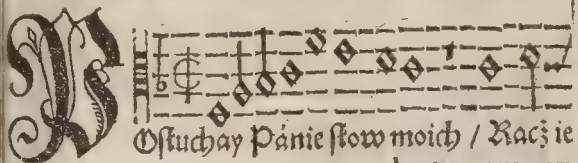 POsłuchay Pánie słow moich / Racż ie